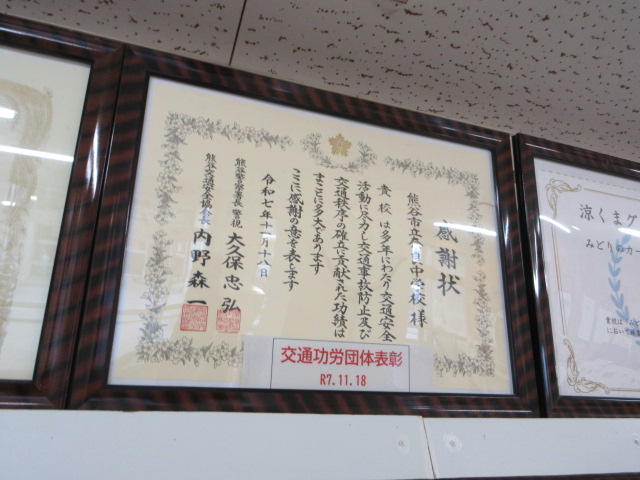 感謝状
熊谷市立
中学校様
貴校は多年にわたり交通安全
活動に尽力し交通事故防止及び
交通秩序の確立に貢献された功績は
まことに多大であります
ここに感謝の意を表します
令和七年十一月十八日
熊谷警察署長 警視 大久保忠弘
熊谷交通安全協会長 内野森一
交通功労団体表彰
R7.11.18
涼くまグ
みどりのカー